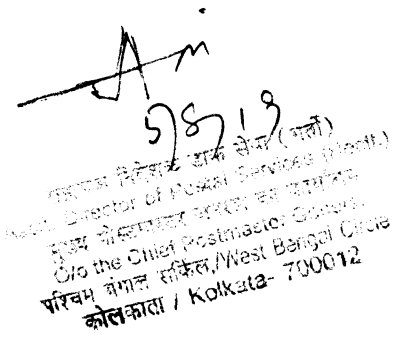 5/8/19
सहायक निदेशक डाक सेवा (भर्ती)
Director of Postal Services (Rectt.)
मुख्य पोस्टमास्टर जनरल का कार्यालय
O/o the Chief Postmaster General
पश्चिम बंगाल सर्किल,/West Bengal Circle
कोलकाता / Kolkata- 700012